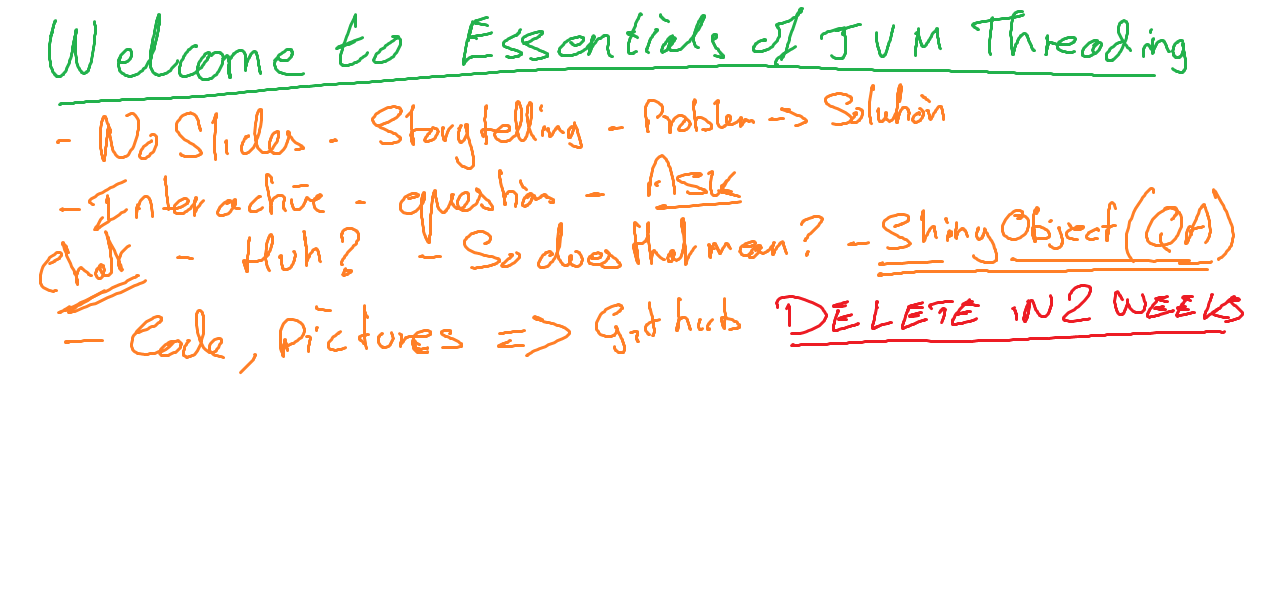 Welcome to Essentials of JVM Threading
- No Slides - Storytelling - Problem -> Solution
- Interactive - question - Ask
Chat - Huh? - So does that mean? - Shiny Object (QA)
- Code, Pictures => Github DELETE IN 2 WEEKS